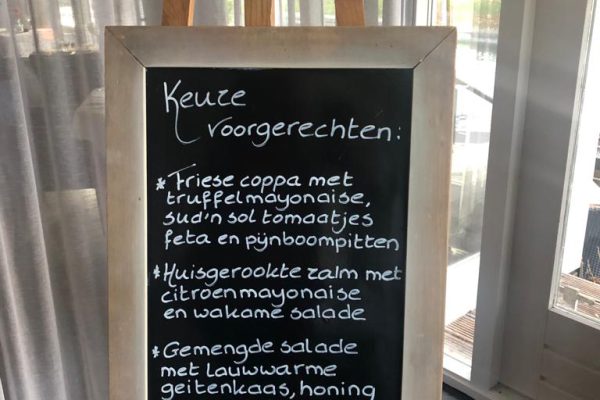 Keuze
voorgerechten:
* Friese coppa met
truffelmayonaise,
sud'n sol tomaatjes
feta en pijnboompitten
* Huisgerookte zalm met
citroenmayonaise
en wakame salade
* Gemengde salade
met lauwwarme
geitenkaas, honing